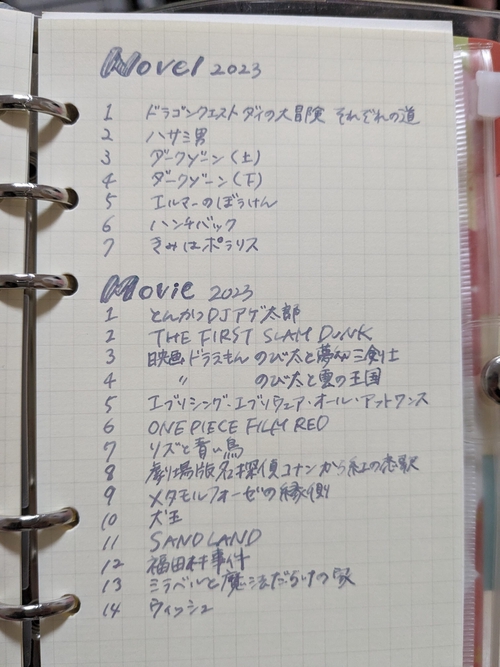 Novel 2023
1 ドラゴンクエスト ダイの大冒険 それぞれの道
2 ハサミ男
3 ダークゾーン(上)
4 ダークゾーン(下)
5 エルマーのぼうけん
6 ハンチバック
7 きみはポラリス
Movie 2023
1 とんかつDJアゲ太郎
2 THE FIRST SLAM DUNK
3 映画ドラえもん のび太と夢幻三剣士
4 〃 のび太と雲の王国
5 エブリシング・エブリウェア・オール・アットワンス
6 ONE PIECE FILM RED
7 リズと青い鳥
8 劇場版名探偵コナン から紅の恋歌
9 メタモルフォーゼの縁側
10 犬王
11 SAND LAND
12 福田村事件
13 ミラベルと魔法だらけの家
14 ウィッシュ